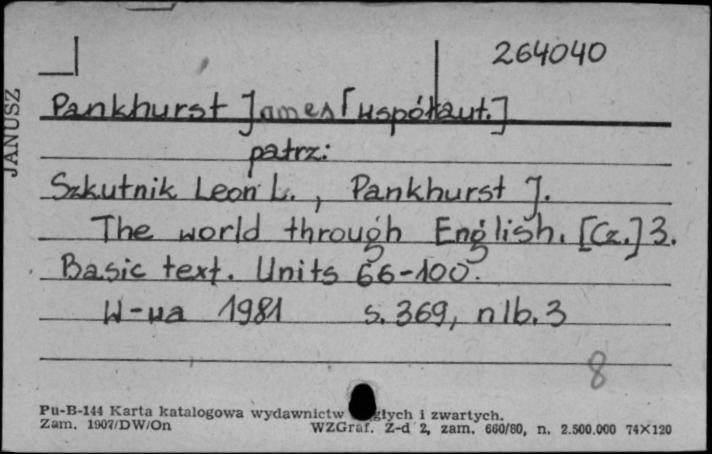 264040
Pankhurst James [współaut.]
patrz:
Szkutnik Leon L., Pankhurst J.
The world through English. [Cz.] 3.
Basic text. Units 66-100.
W-wa 1981 s. 369, nlb. 3
8
Pu-B-144 Karta katalogowa wydawnictw głych i zwartych.
Zam. 1907/DW/On WZGraf. Z-d 2, zam. 660/80, n. 2.500.000 74×120
JANUSZ